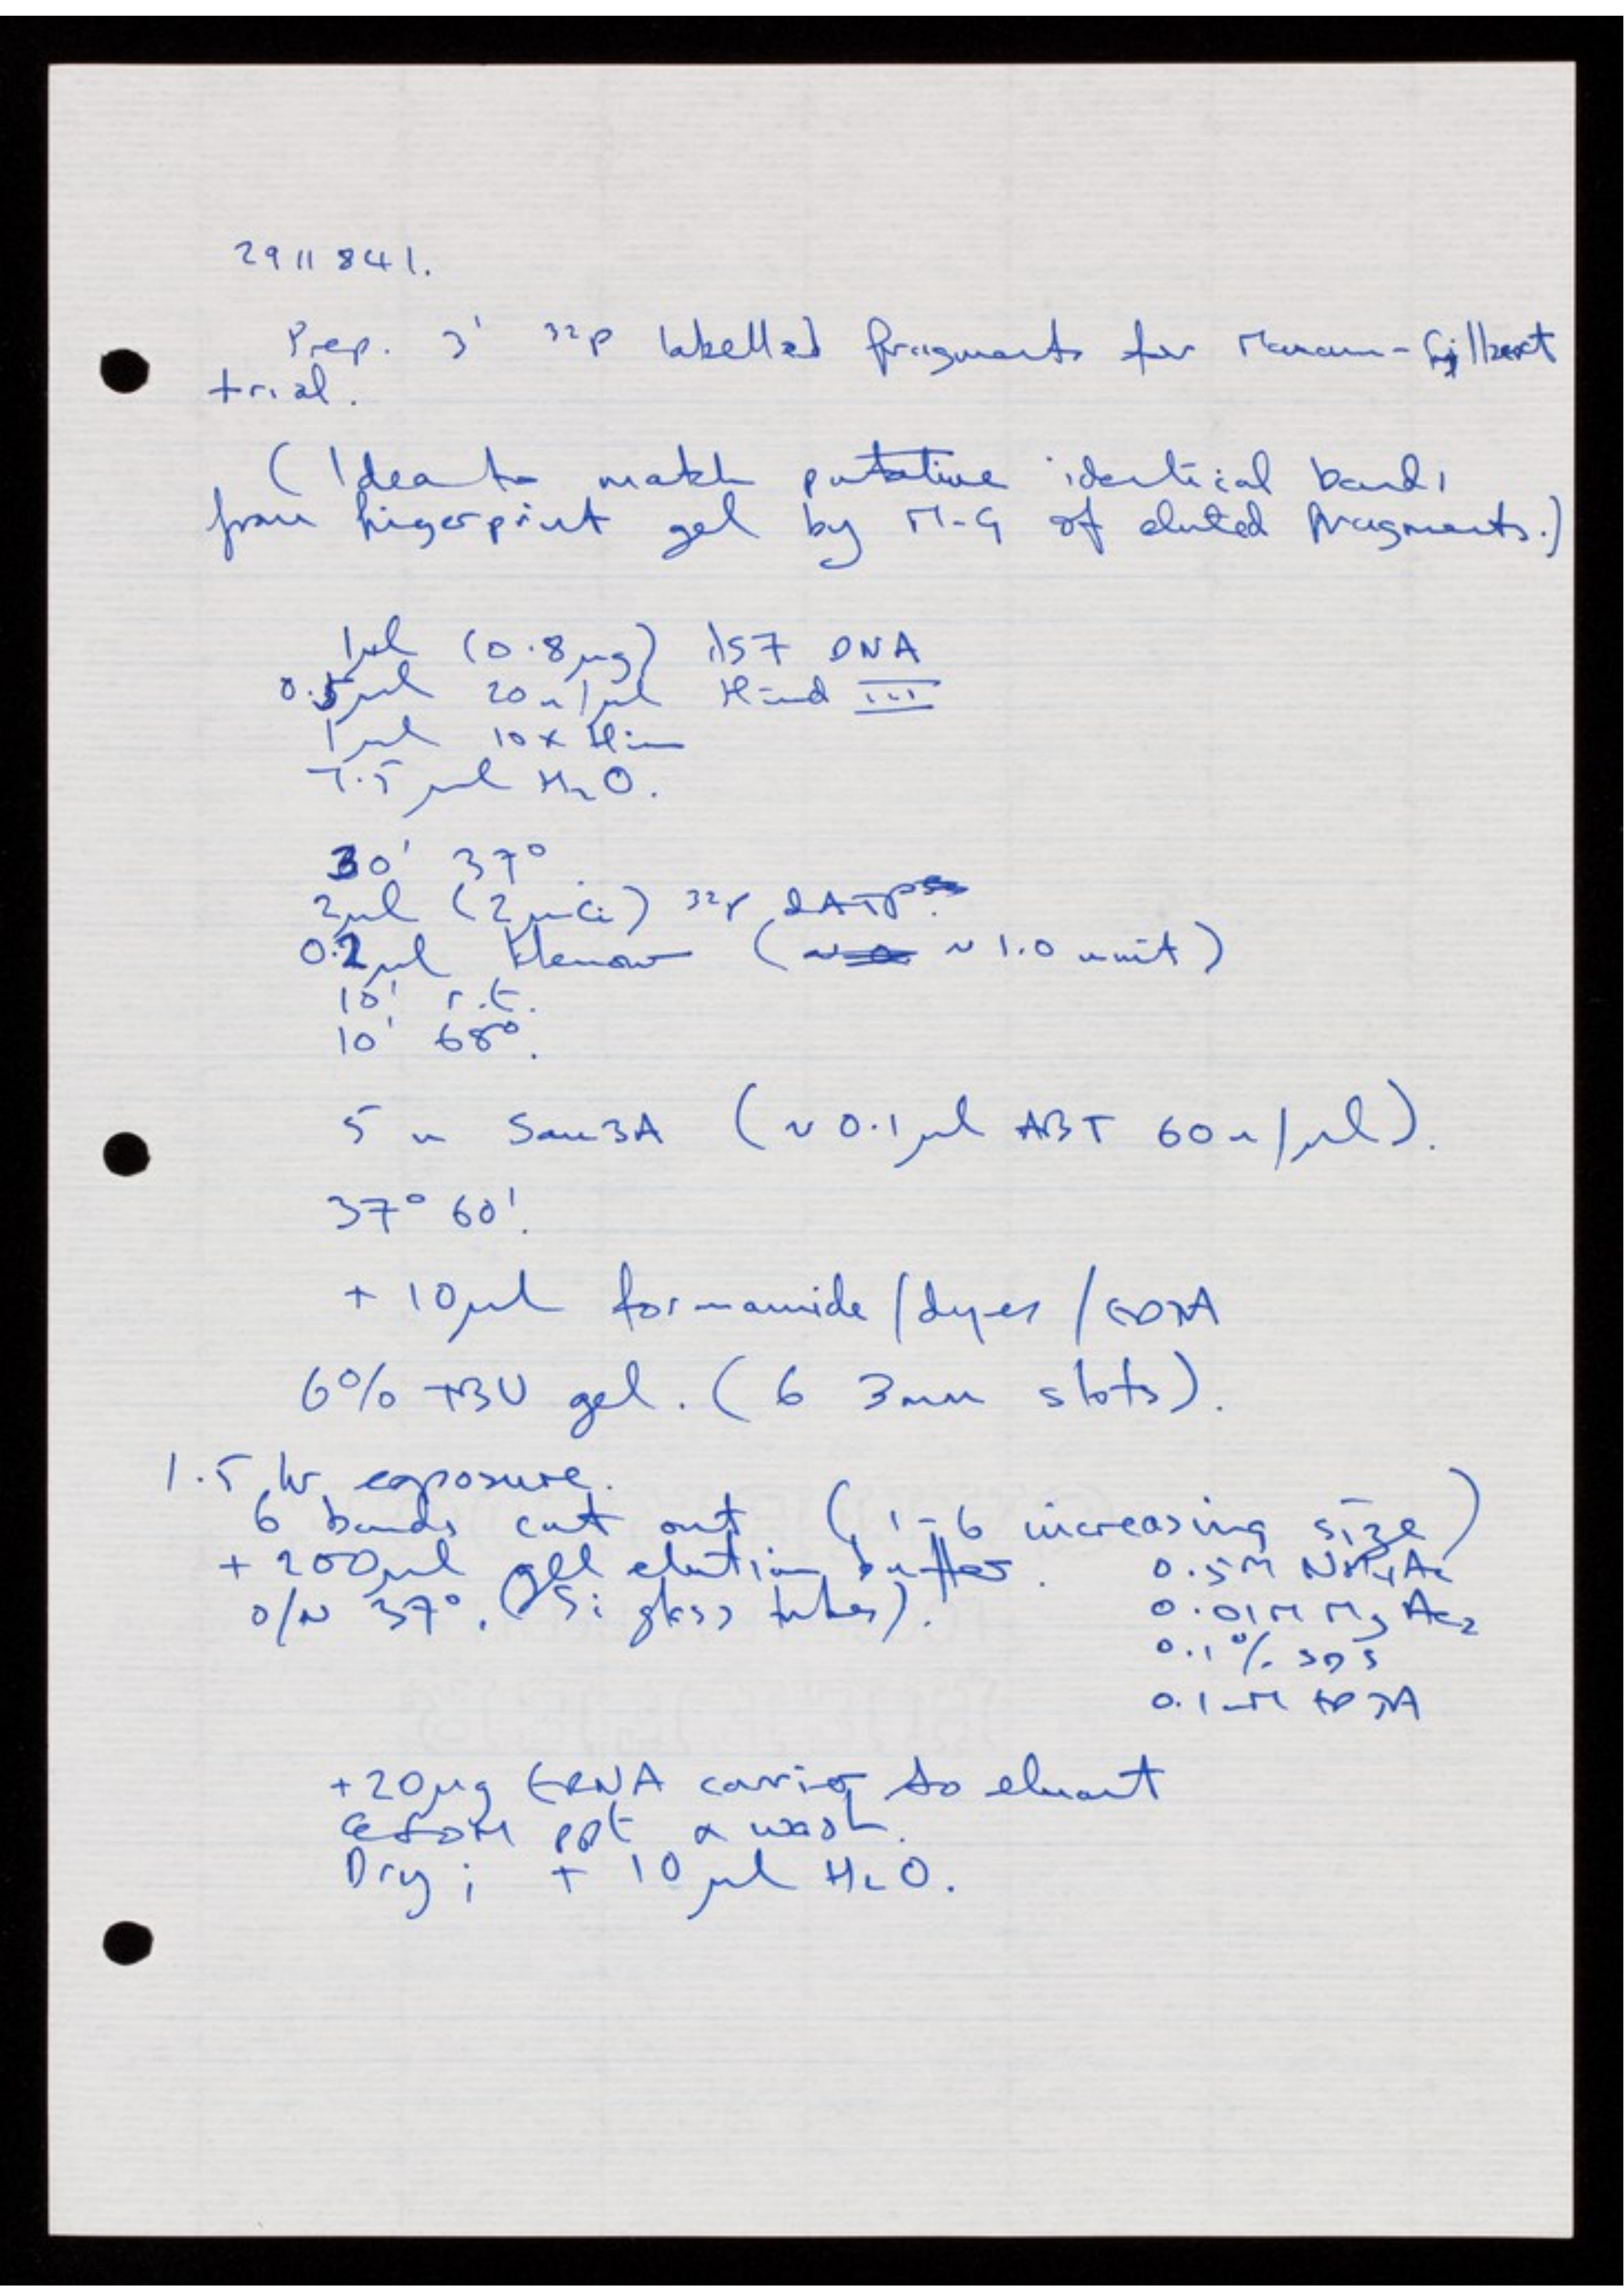 29 11 84 1.
Prep. 3' 32P labelled fragments for Maxam-Gilbert
trial.
(Idea to match putative identical bands
from figerprint gel by M-G of eluted fragments.)
1µl (0.8µg) λ57 DNA
0.5µl 20u/µl Hind III
1µl 10x Hin
7.5µl H2O.
30' 37°
2µl (2µCi) 32P dATP
0.2µl Klenow ( ~1.0 unit)
10' r.t.
10' 68°.
5 u Sau3A (~0.1µl ABT 60u/µl).
37° 60'.
+ 10µl formamide/dyes/EDTA
6% TBU gel. (6 3mm slots).
1.5 hr exposure.
6 bands cut out (1-6 increasing size)
+ 200µl gel elution buffer. 0.5M NH4Ac
o/n 37°. (Si glass tubes). 0.01M Mg Ac2
0.1% SDS
0.1mM EDTA
+20µg tRNA carrier to eluant
EtOH ppt & wash.
Dry; + 10µl H2O.